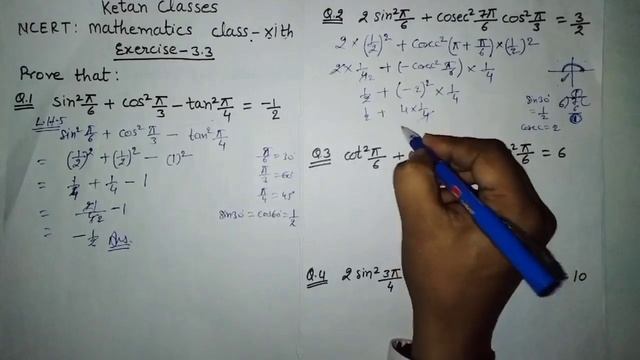 Ketan Classes
NCERT: mathematics class-xith
Exercise-3.3
Prove that:
Q.1 sin²π/6 + cos²π/3 - tan²π/4 = -1/2
L.H.S
sin²π/6 + cos²π/3 - tan²π/4
= (1/2)² + (1/2)² - (1)²
= 1/4 + 1/4 - 1
- 1
= -1/2 Ans.
π/6 = 30
π/3 = 60
π/4 = 45°
sin30 = cos60 = 1/2
Q.2 2 sin²π/6 + cosec²7π/6 cos²π/3 = 3/2
2 × (1/2)² + cosec²(π + π/6) × (1/2)²
2 × 1/4 + (-cosec²π/6) × 1/4
1/2 + (-2)² × 1/4
1/2 + 4 × 1/4
sin30
= 1/2
cosec = 2
Q.3 cot²π/6 + ²π/6 = 6
Q.4 2 sin²3π/4 10